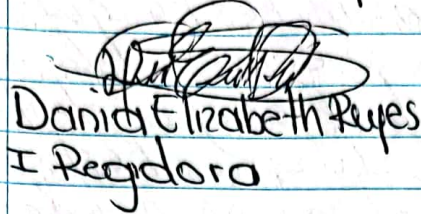 Dania Elizabeth Reyes
I Regidora